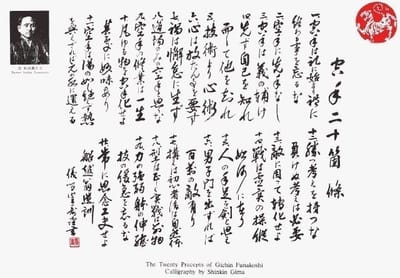 空手二十箇條
一、空手は礼に始り礼に
終る事を忘るな
二、空手に先手なし
三、空手は義の補け
四、先づ自己を知れ
而して他を知れ
五、技術より心術
六、心は放たん事を要す
七、禍は懈怠に生ず
八、道場のみの空手と思ふな
九、空手の修業は一生
十、凡ゆる物を空手化せよ
其処に妙味あり
十一、空手は湯の如し絶えず熱
を与えざれば元の水に還る
十二、勝つ考えは持つな
負けぬ考えは必要
十三、敵に因って轉化せよ
十四、戦は虚実の操縦
如何に在り
十五、人の手足を剣と思え
十六、男子門を出づれば
百万の敵有り
十七、構は初心者に後は自然体
十八、型は正しく実戦は別物
十九、力の強弱体の伸縮
技の緩急を忘るな
二十、常に思念工夫せよ
船越翁遺訓
The Twenty Precepts of Gichin Funakoshi
Calligraphy by Shinkin Gima